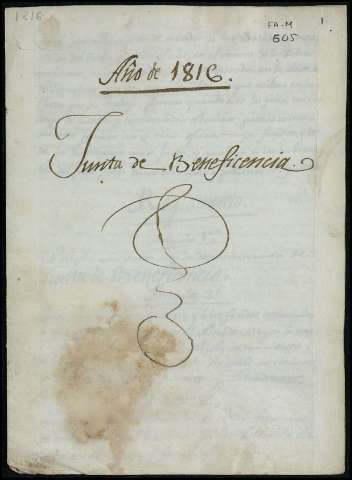 1816
FA-M
605
1
Año de 1816.
Junta de Beneficencia.